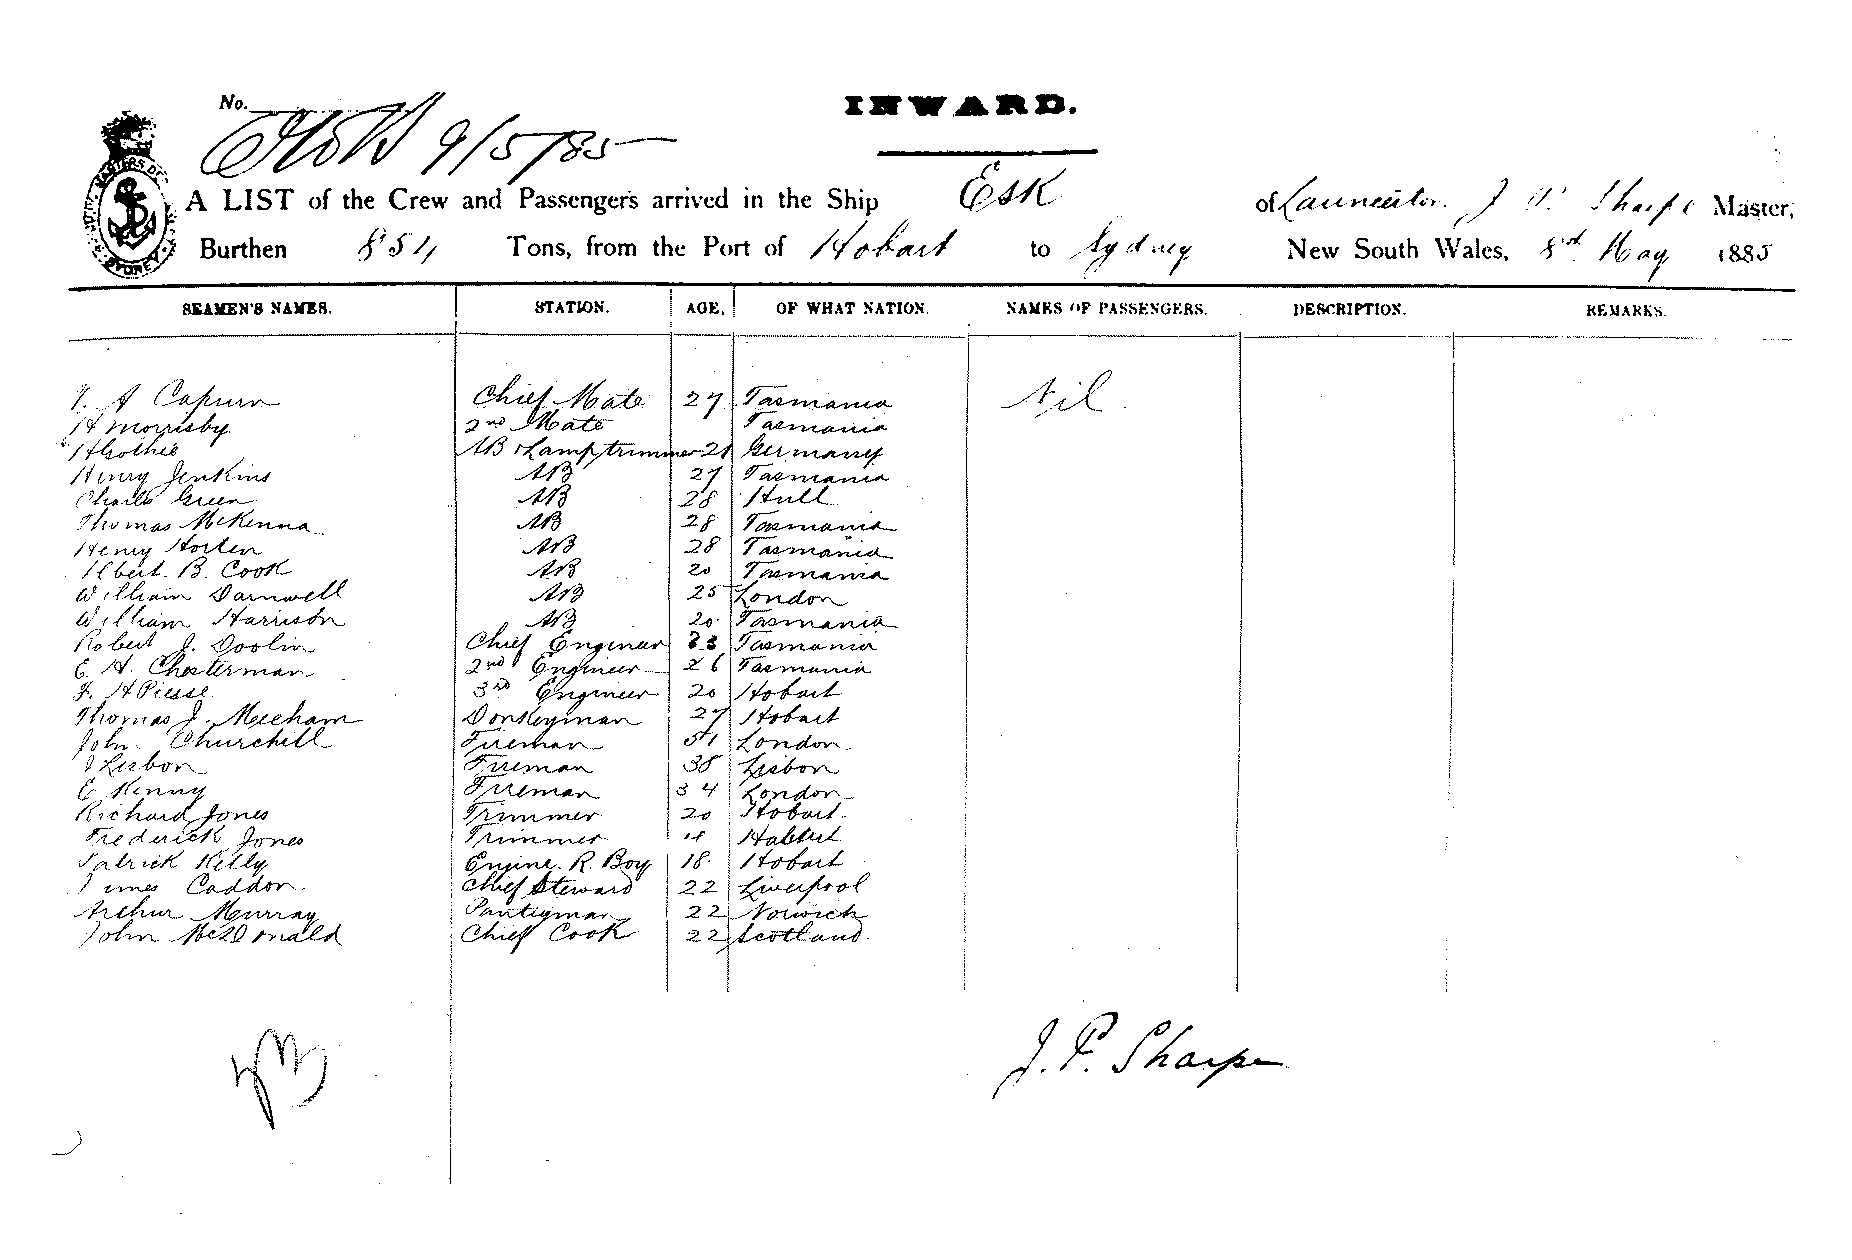 INWARD.
No.
9/5/85
A LIST of the Crew and Passengers arrived in the Ship Esk of Launceston J P. Sharpe Master,
Burthen 854 Tons, from the Port of Hobart to Sydney New South Wales, 8th May 1885
SEAMEN'S NAMES. STATION. AGE. OF WHAT NATION. NAMES OF PASSENGERS. DESCRIPTION. REMARKS.
A Capurn Chief Mate 27 Tasmania Nil
H Morrisby 2nd Mate Tasmania
AB & Lamptrimmer 21 Germany
Henry Jenkins AB 27 Tasmania
Charles Green AB 28 Hull
Thomas McKenna AB 28 Tasmania
Henry Horten AB 28 Tasmania
Albert B. Cook AB 20 Tasmania
William Darnwell AB 25 London
William Harrison AB 20 Tasmania
Robert J. Doolin Chief Engineer 33 Tasmania
E. A. Chesterman 2nd Engineer 26 Tasmania
F. H Piesse 3rd Engineer 20 Hobart
Thomas J. Meecham Donkeyman 27 Hobart
John Churchill Fireman 51 London
J Lisbon Fireman 38 Lisbon
E Kenny Fireman 34 London
Richard Jones Trimmer 20 Hobart
Frederick Jones Trimmer Hobart
Patrick Kelly Engine. R. Boy 18 Hobart
James Caddon Chief Steward 22 Liverpool
Arthur Murray Pantryman 22 Norwich
John McDonald Chief Cook 22 Scotland
J. P. Sharpe